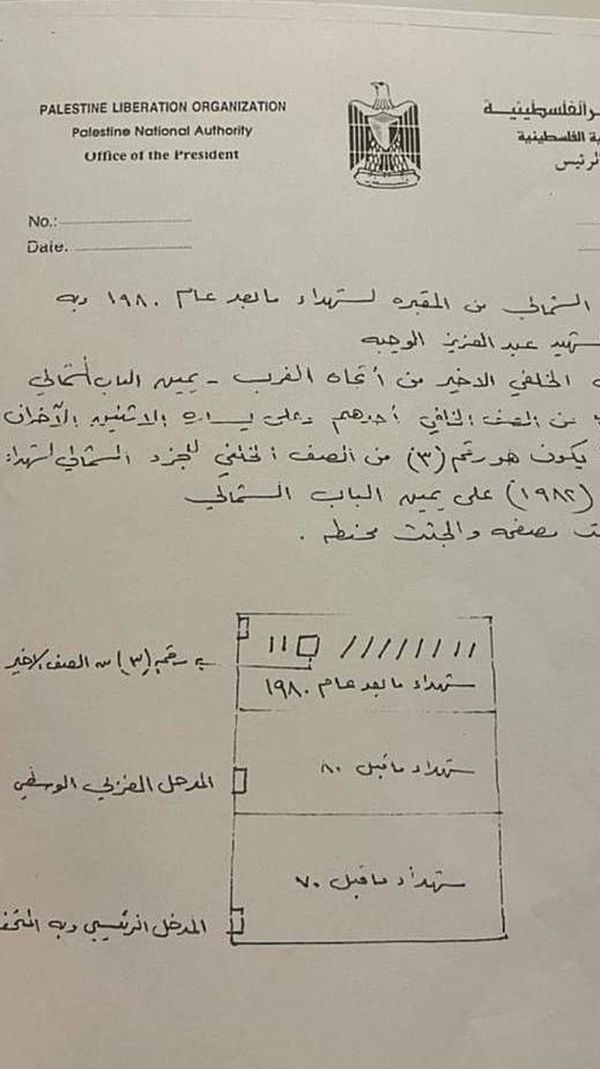 PALESTINE LIBERATION ORGANIZATION
Palestine National Authority
Office of the President
الفلسطينية
الفلسطينية
الرئيس
No.:
Date.
الشمالي من المقبره لشهداء ما بعد عام ١٩٨٠ وبه
عبد العزيز الوجيه
الخلفي الاخير من أتجاه الغرب - يمين الباب الشمالي
من الصف الخلفي أحدهم وعلى يساره الاثنين الآخران
يكون هو رقم (٣) من الصف الخلفي للجزء الشمالي لشهداء
(١٩٨٢) على يمين الباب الشمالي
مصفحه والجثث محنطه .
رقم (٣) من الصف الاخير
شهداء ما بعد عام ١٩٨٠
شهداء ما قبل ٨٠
المدخل الغربي الوسطي
شهداء ما قبل ٧٠
المدخل الرئيسي وبه